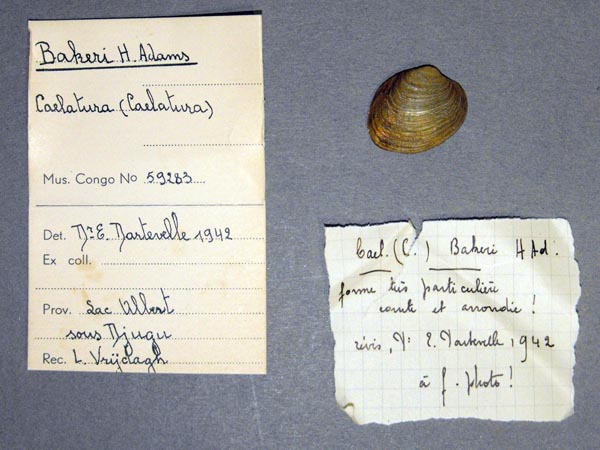 Bakeri H. Adams
Caelatura (Caelatura)
Mus. Congo No 59283
Det. Dr E. Dartevelle 1942
Ex coll.
Prov. Lac Albert
sous Djugu
Rec. L. Vrijdagh
Cael. (C.) Bakeri H Ad.
forme très particulière
courte et arrondie !
révis. Dr E. Dartevelle 1942
à f. photo !